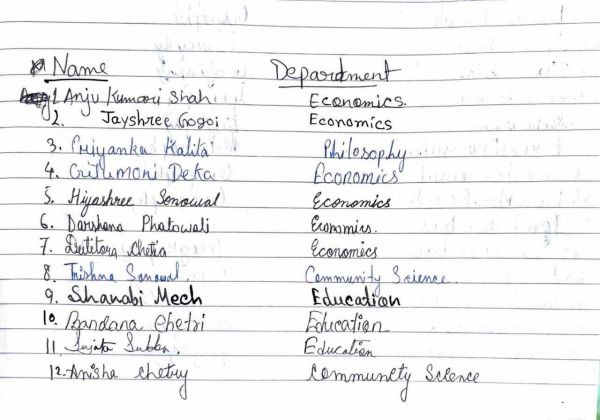 Name Department
1 Anju Kumari Shah Economics.
2. Jayshree Gogoi Economics
3. Priyanka Kalita Philosophy
4. Gritumoni Deka Economics
5. Hiyashree Sonowal Economics
6. Darshana Phatowali Economics.
7. Chetia Economics
8. Trishna Sonowal Community Science.
9. Shanabi Mech Education
10. Bandana Chetri Education
11. Sujata Subba. Education
12. Anisha Chetry Community Science